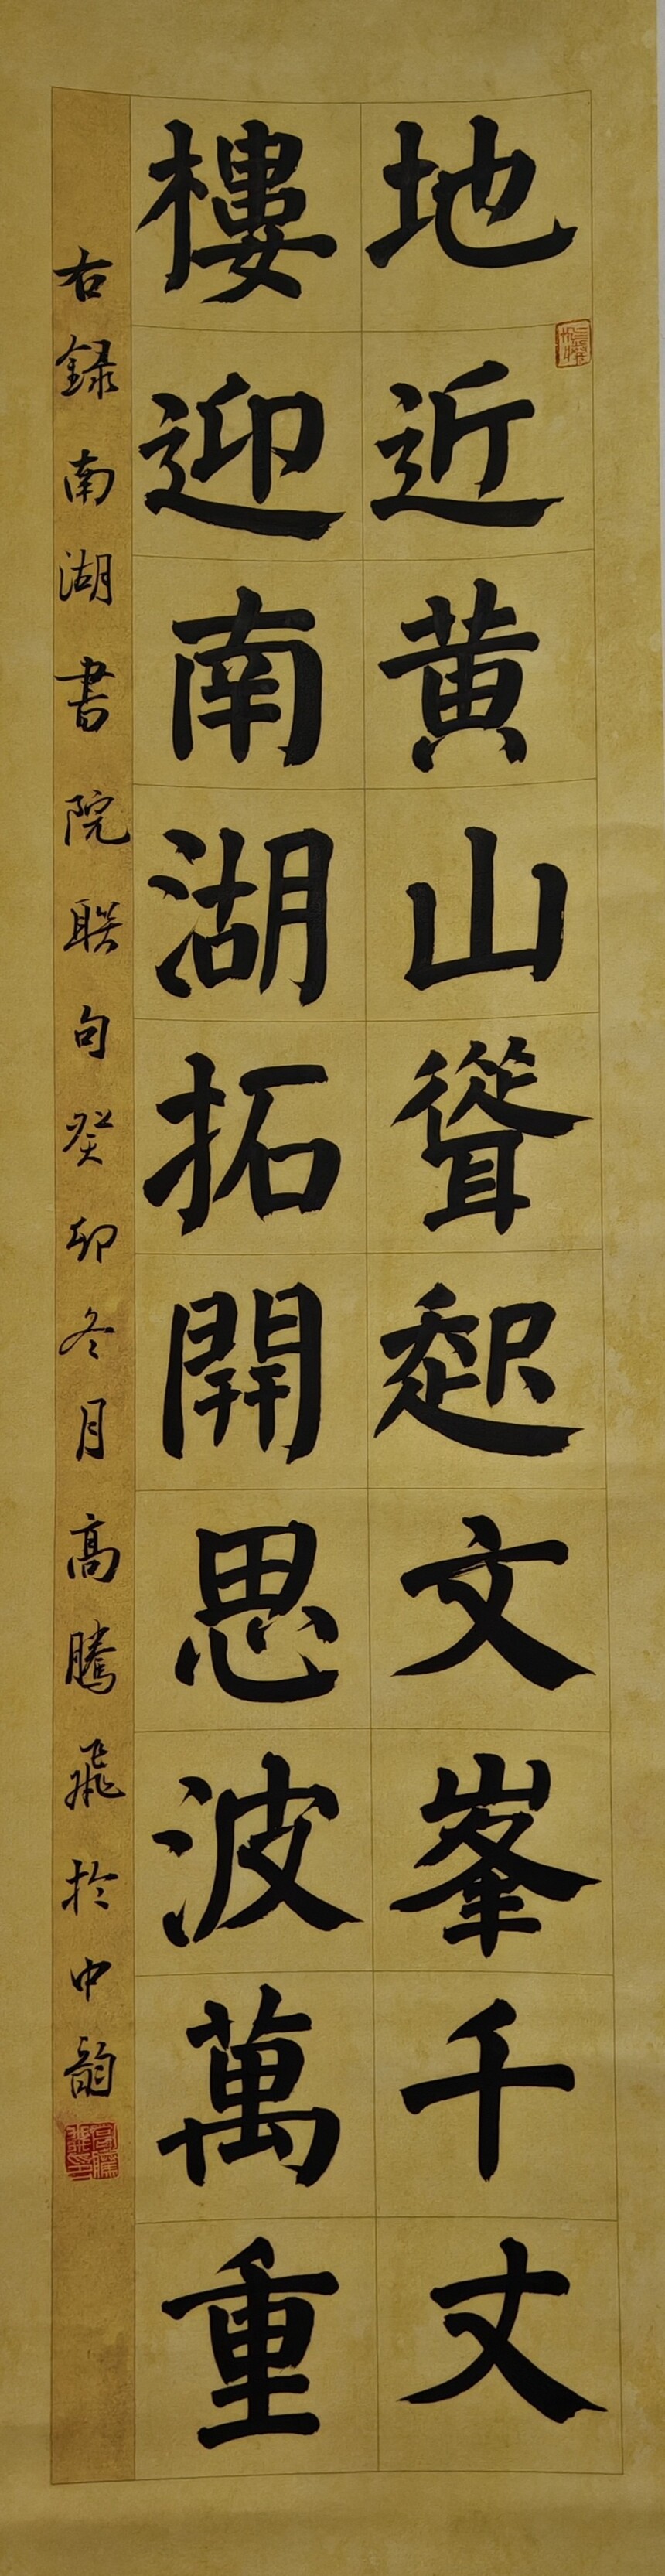 地近黄山聳起文峯千丈
樓迎南湖拓開思波萬重
右録南湖書院联句癸卯冬月高騰飛於中韵